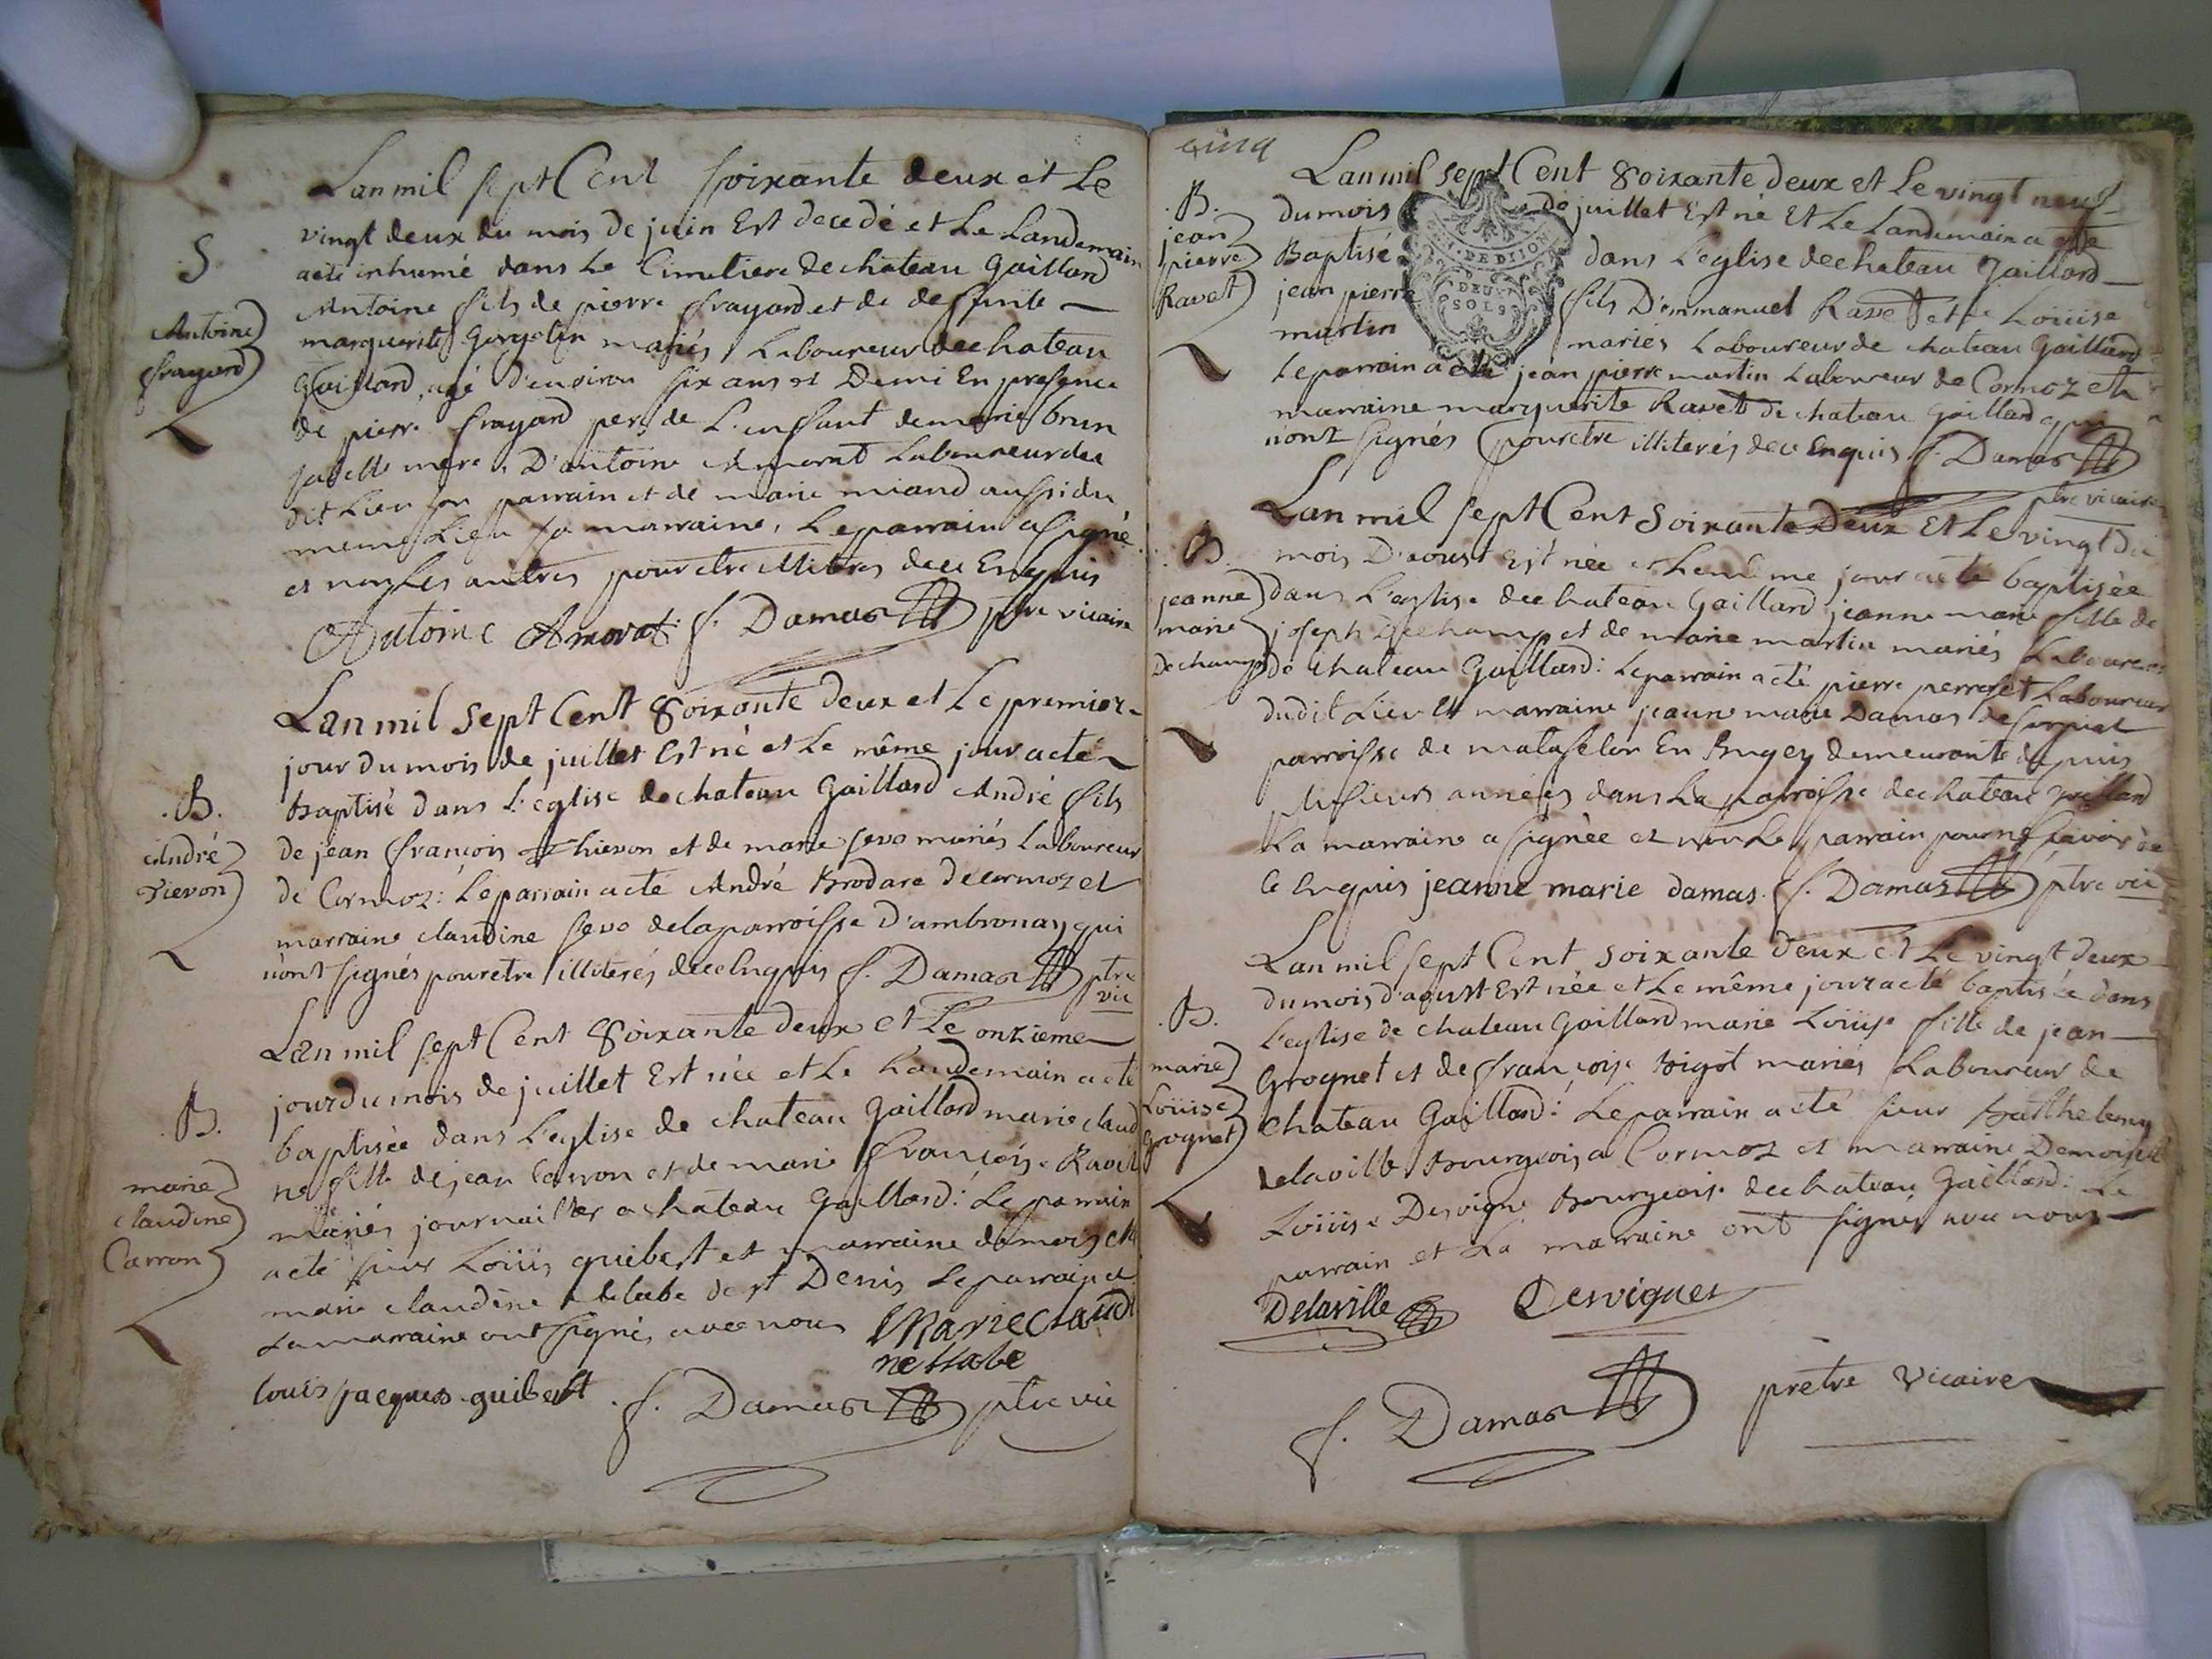 Lan mil sept Cent soixante deux et Le
vingt deux du mois de juin Est decedé et Le Landemain
S
acté inhumé dans Le Cimetiere de chateau Gaillard
Antoine fils de pierre frayard et de deffunte
Antoine
frayard
marguerite mariés Laboureur de chateau
Gaillard, agé d'environ six ans et Demi En presence
de pierre frayard pere de L'enfant de marie brun
sa belle mere, D'antoine Amorat Laboureur du
dit Lieu son parrain et de marie miand aussi du
meme Lieu sa marraine, Le parrain a signé
et non Les autres pour etre illiteres de ce Enquis
Antoine Amorat f. Damas ptre vicaire
Lan mil sept Cent Soixante deux et Le premier
jour du mois de juillet Est né et Le même jour acté
Baptisé dans L'église de chateau Gaillard André fils
B.
André
Tievon
de jean françois Thievon et de marie seve mariés Laboureur
de Cormoz: Le parrain acté André Brodare de cormoz et
marraine claudine seve de la parroisse D'ambronay qui
n'ont signés pour etre illiterés de ce Enquis f. Damas ptre
vic
Lan mil sept Cent Soixante deux et Le onzieme
jour du mois de juillet Est née et Le Landemain acté
B.
baptisée dans L'eglise de chateau Gaillard marie claudi
ne fille de jean Carron et de marie françoise Ravet
marie
claudine
Carron
mariés journailler a chateau Gaillard: Le parrain
acté sieur Loüis guibert et marraine demoiselle
marie claudine de st Denis Le parrain et
La marraine ont signés avec nous Marie Claudi
ne
louis jacques guibert f. Damas ptre vic
cinq
Lan mil sept Cent Soixante deux et Le vingt neuf
B.
jean
pierre
Ravet
du mois de juillet Est né Et Le Landemain a esté
GEN. DE DIJON
DEUX
SOLS
Baptisé dans L'eglise de chateau Gaillard
jean pierre fils D'emmanuel Ravet et de Loüise
martin mariés Laboureur de chateau Gaillard
Le parrain a été jean pierre martin Laboureur de Cormoz et la
marraine marguerite Ravet de chateau Gaillard qui
n'ont signés pour etre illiterés de ce Enquis f. Damas
ptre vicaire
Lan mil sept Cent Soixante Deux Et Le vingt du
B.
mois D'aoust Est née et Le même jour acté baptisée
jeanne
marie
Dechamp
dans L'eglise de chateau Gaillard jeanne marie fille de
joseph Dechamp et de marie martin mariés Laboureur
de chateau Gaillard: Le parrain acté pierre perret Laboureur
dudit Lieu Et marraine jeanne marie Damas de
parroisse de matafelon En Bugey demeurante depuis
plusieurs années dans La parroisse de chateau Gaillard
La marraine a signée et non Le parrain pour ne sçavoir de
ce Enquis jeanne marie damas. f. Damas ptre vic
Lan mil sept Cent soixante deux et Le vingt deux
du mois d'aoust Est née et Le même jour acté baptisée dans
B.
L'eglise de chateau Gaillard marie Loüise fille de jean
marie
Loüise
Grognet
Grognet et de françoise Bigot mariés Laboureur de
chateau Gaillard: Le parrain acté sieur Barthelemy
delaville Bourgeois a Cormoz et marraine Demoiselle
Loüise Desvigne Bourgeoise de chateau Gaillard: Le
parrain et La marraine ont signés avec nous
Delaville Desvignes
f. Damas pretre vicaire